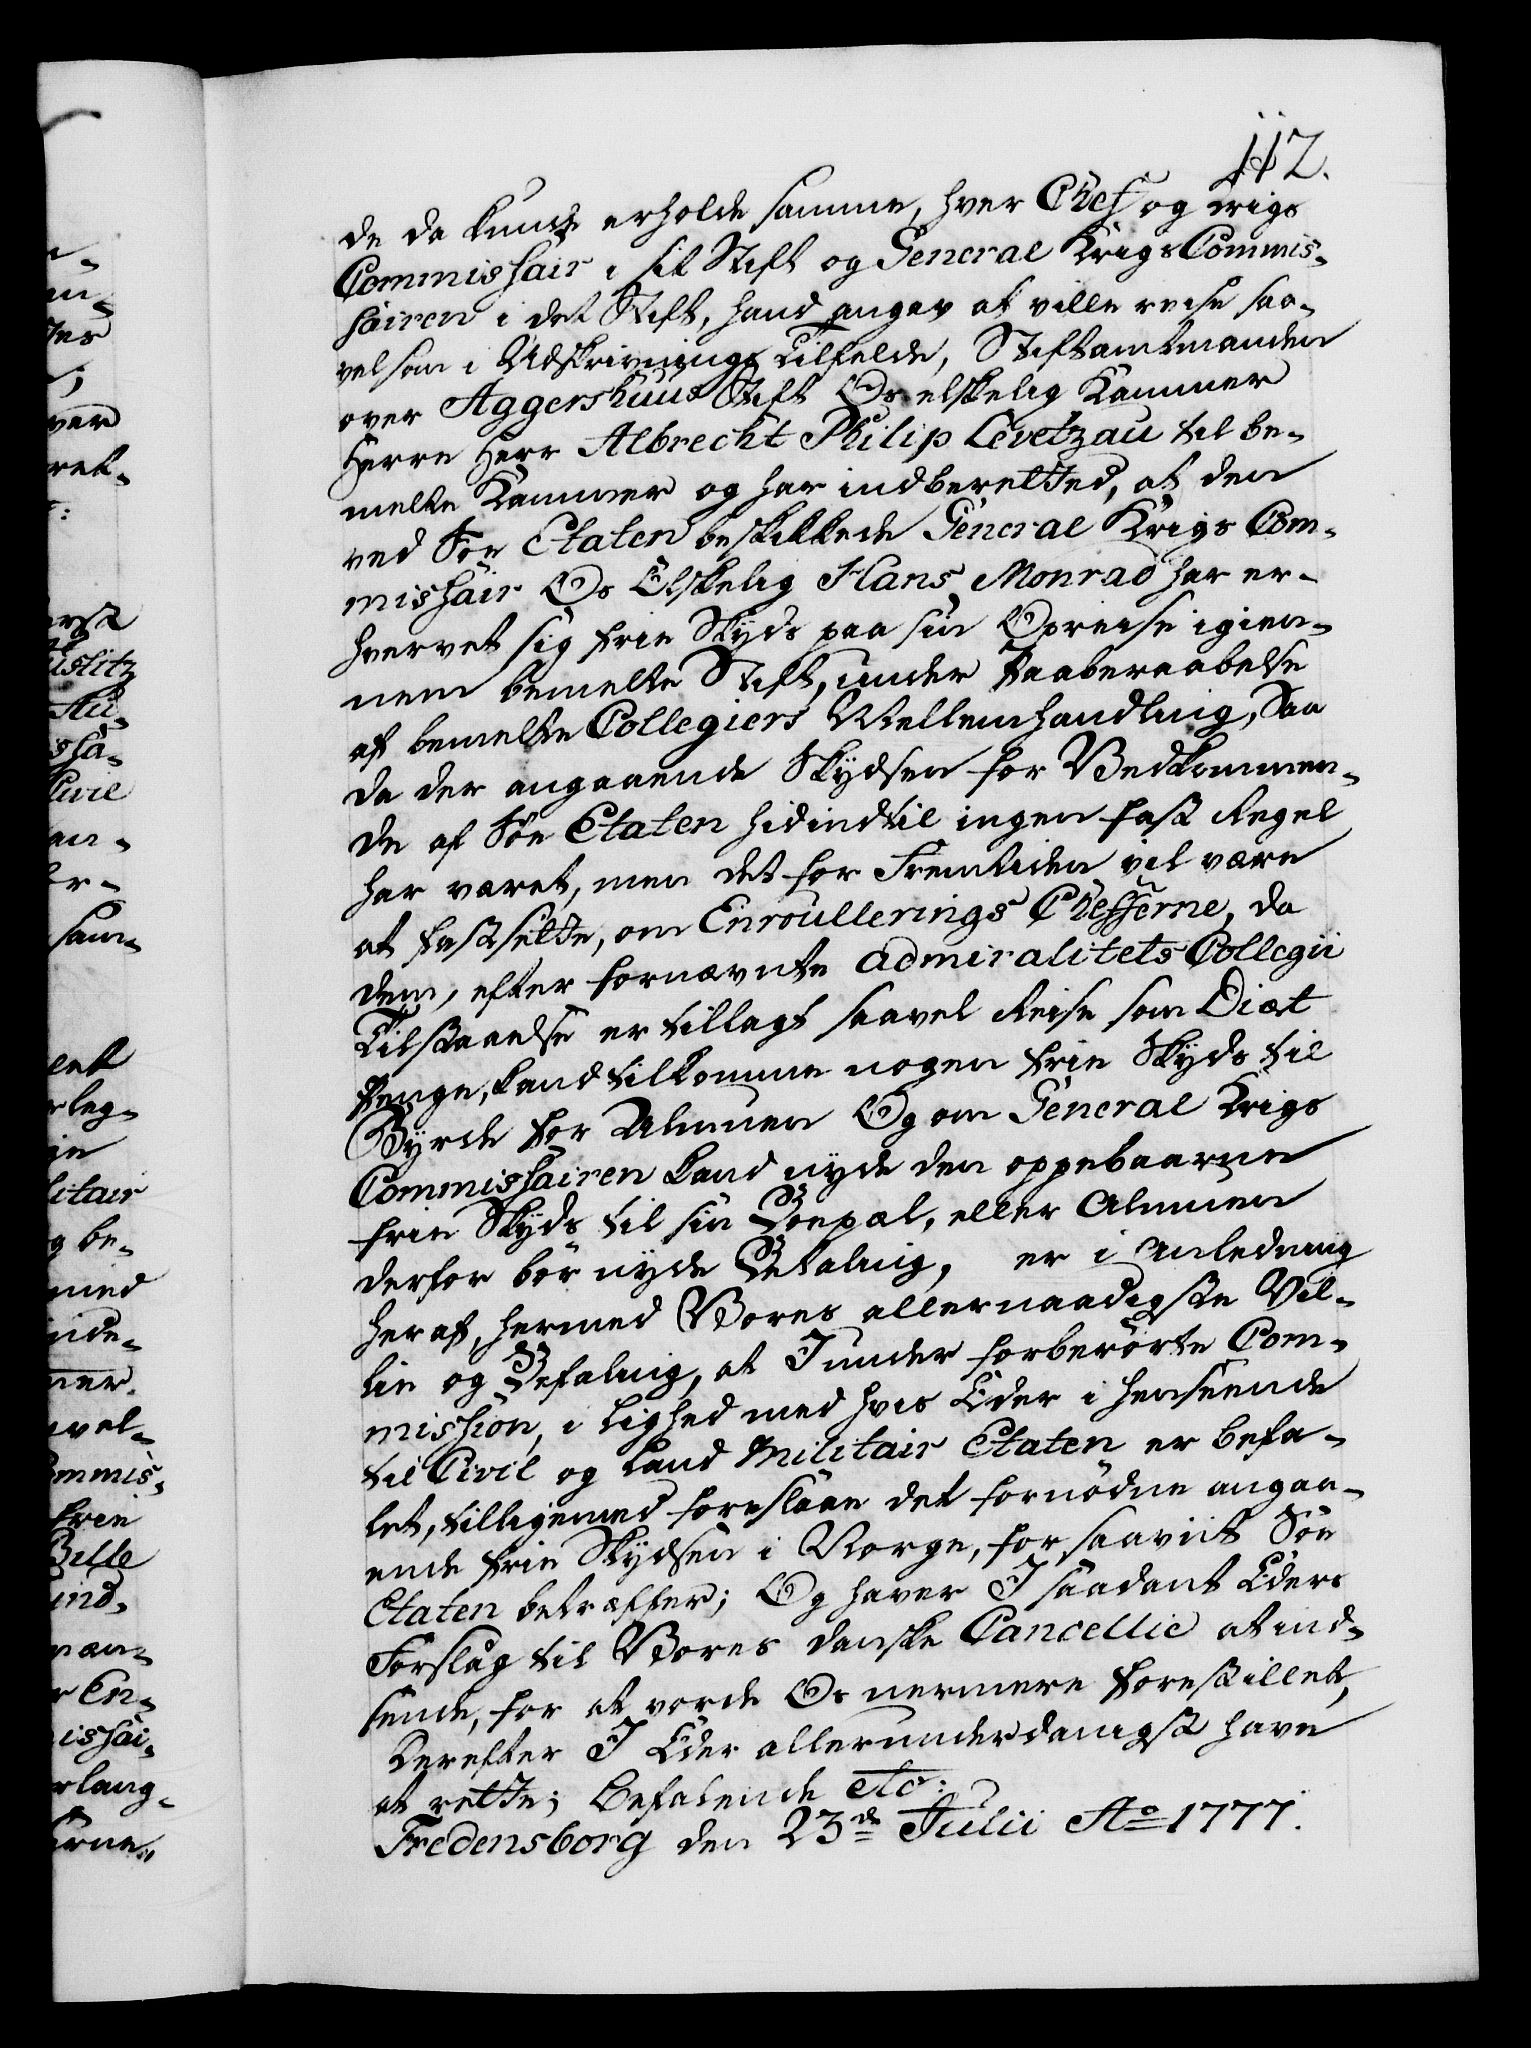 112.
de da kunde erholde samme, hver Chef og Krigs
Commissair i sit Stift og General Krigs Commis-
sairen i det Stift, hand angav at ville reise saa-
vel som i Udskrivnings Tilfelde, Stiftamtmanden
over Aggershuus Stift Os elskelig Kammer
Herre Herr Albrecht Philip Levetzau til be-
melte Kammer og har indberetted, at den
ved Søe Etaten beskikkede General Krigs Com-
missair Os Elskelig Hans Monrad har er-
hvervet sig frie Skyds paa sin Opreise igien-
nem bemelte Stift, under Paaberaabelse
af bemelte Collegiers Mellemhandling, Saa
da der angaaende Skydsen for Vedkommen-
de af Søe Etaten hidindtil ingen fast Regel
har været, men det for Fremtiden vil være
at fastsette, om Enroullerings Chefferne, da
dem, efter fornævnte Admiralitets Collegii
Tilstaaelse er tillagt saavel Reise som Diæt
Penge, kand tilkomme nogen frie Skyds til
Byrde for Almuen Og om General Krigs
Commissairen kand nyde den oppebaarne
frie Skyds til sin Boepæl, eller Almuen
derfor bør nyde Betaling, er i Anledning
heraf, hermed Vores allernaadigste Vil-
lie og Befaling, at I under forberørte Com-
mission, i Lighed med hvis Eder i henseende
til Civil og Land Militair Etaten er befa-
let, tilligemed foreslaae det fornødne angaa-
ende frie Skydsen i Norge, forsaavit Søe
Etaten betræffer; Og haver I saadant Eders
Forslag til Vores danske Cancellie at ind-
sende, for at vorde Os nermere forestillet,
Derefter I Eder allerunderdanigst have
at rette; Befalende etc:
Fredensborg den 23de Julii Ao 1777.